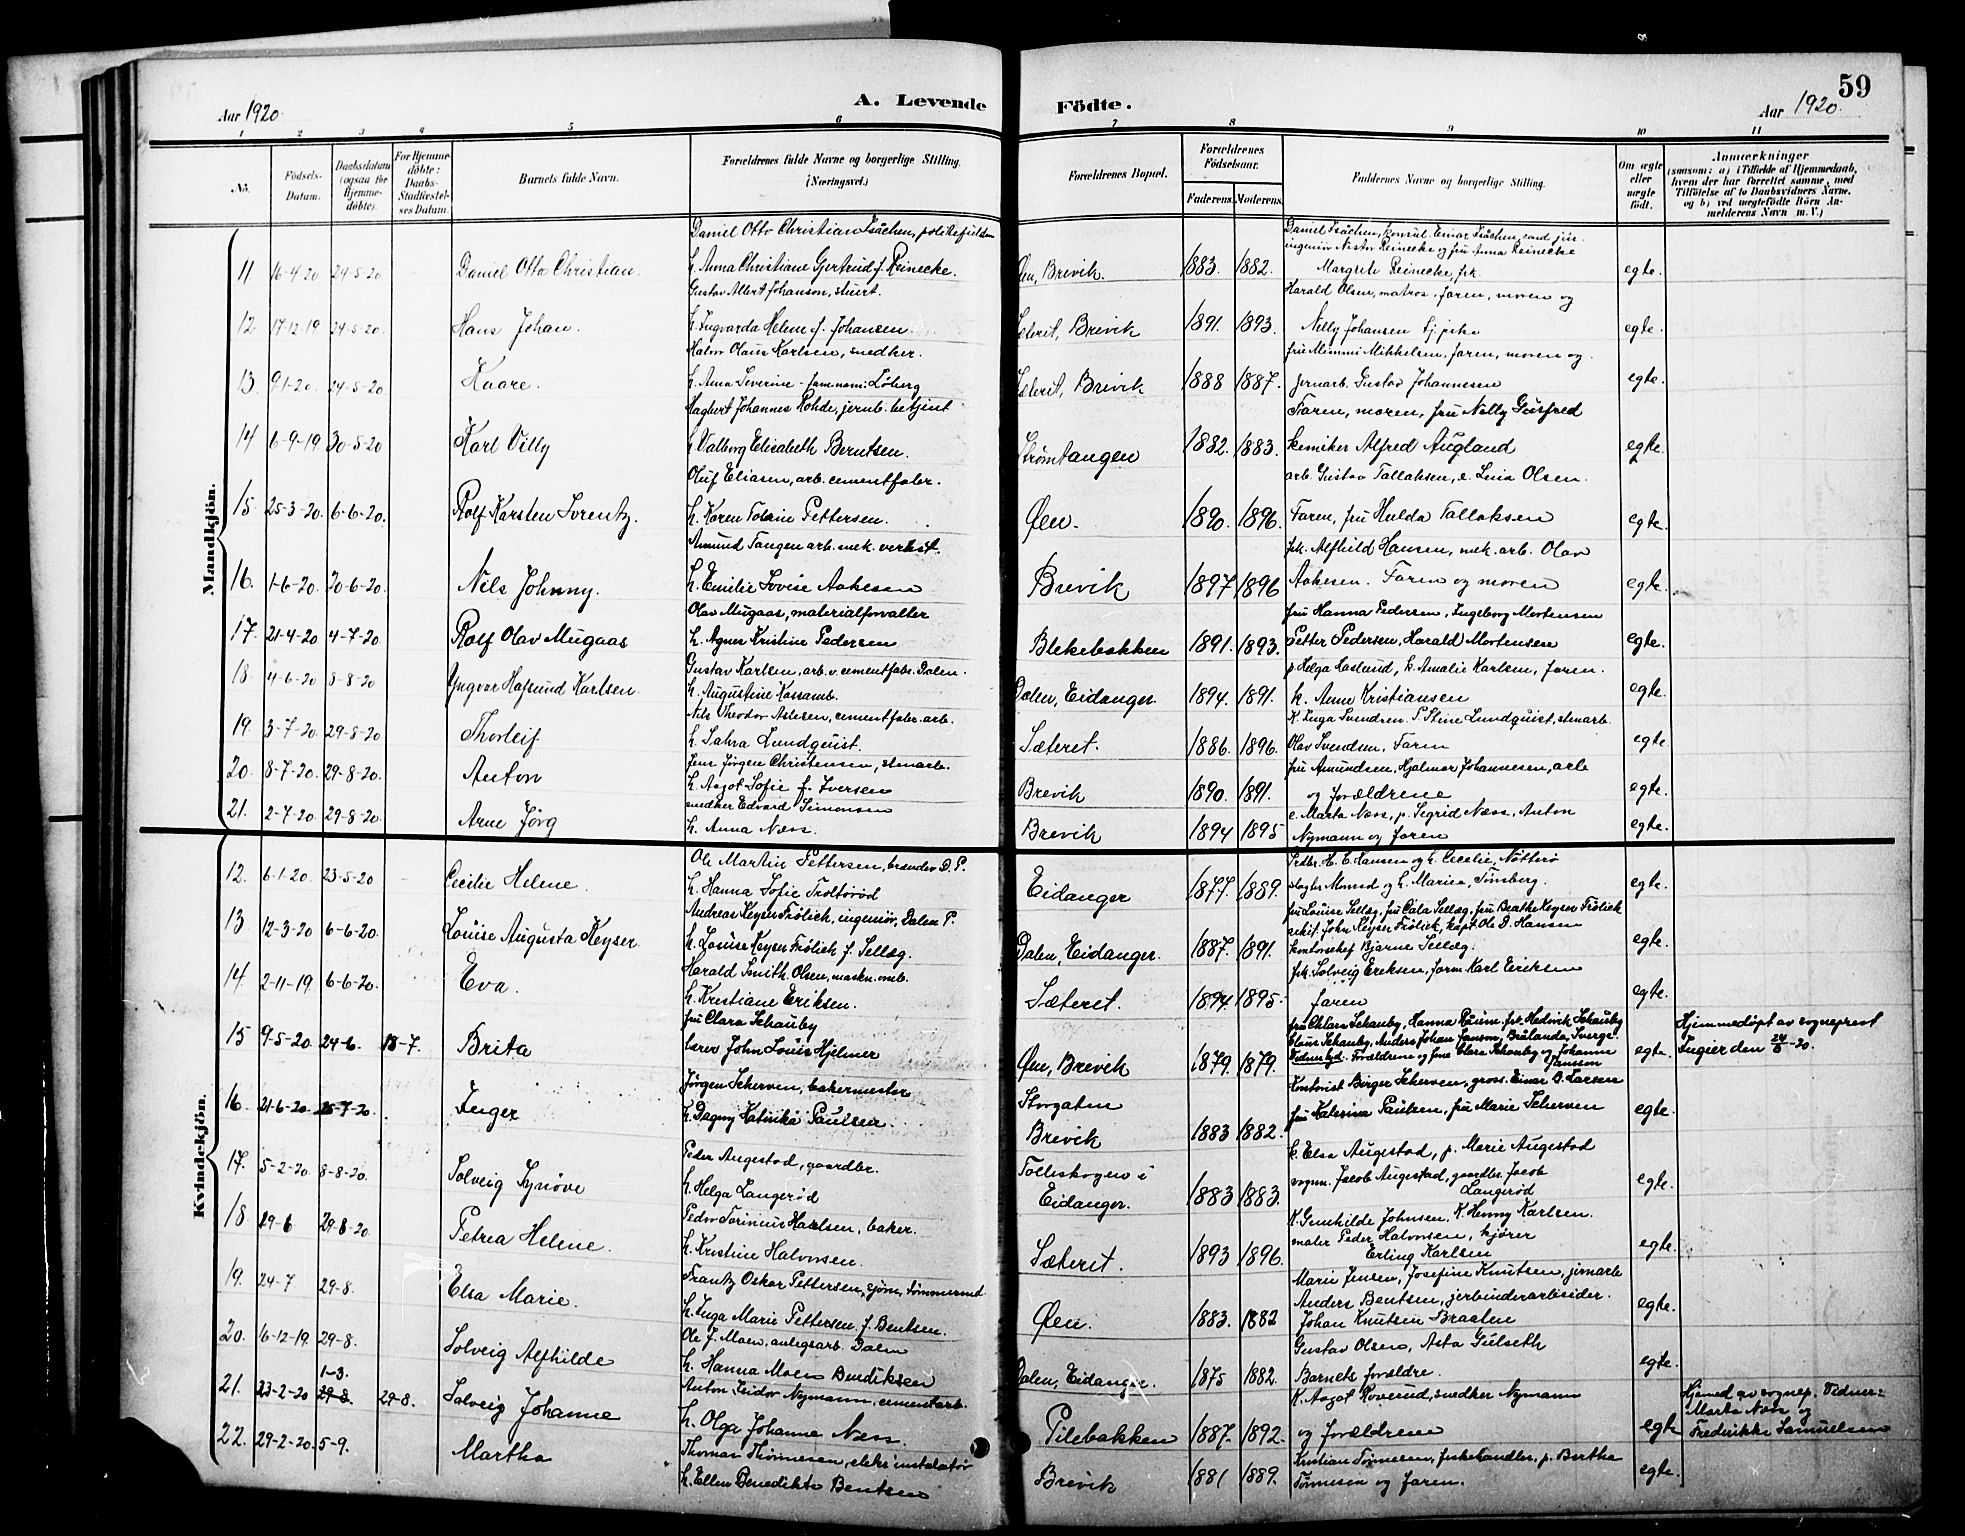 59
Aar 1920.
A. Levende Födte.
Aar 1920.
1 2 3 4 5 6 7 8 9 10 11
No.
Födsels-Datum.
Daabsdatum (ogsaa for Hjemme-döbte).
For Hjemme-döbte: Daabs-Stadfæstel-ses Datum.
Barnets fulde Navn.
Forældrenes fulde Navne og borgerlige Stilling. (Næringsvei.)
Forældrenes Bopæl.
Forældrenes Födselsaar.
Faderens. Moderens.
Faddernes Navne og borgerlige Stilling.
Om ægte eller uægte födt.
Anmærkninger (saasom: a) i Tilfælde af Hjemmedaab, hvem der har forrettet samme, med Tilföielse af to Daabsvidners Navne, og b) ved uægtefödte Börn An-melderens Navn m. V.)
Mandkjön.
11 16-4-20 24-5-20 Daniel Otto Christian.
Daniel Otto Christian Isachsen, politifuldm
h. Anna Christiane Gjertrud f. Reinecke.
Øen, Brevik. 1883. 1882.
Daniel Isachsen, konsul. Einar Isachsen, cand jur.
ingeniör Nestor Reinecke og fru Anna Reinecke
Margrete Reinecke, frk.
egte.
12 17-12-19 24-5-20. Hans Johan.
Gustav Albert Johanson, stuert.
h. Ingvarda Helene f. Johansen
Sæteret, Brevik 1891. 1893.
Harald Olsen, matros. faren, moren og
Nelly Johansen tj.pike
egte.
13. 9-1-20. 24-5-20 Kaare.
Halvor Olaus Karlsen, snedker.
h. Anna Severine - fam.navn: Löberg
Sæteret, Brevik 1888 1887.
fru Mimmi Mikkelsen, faren, moren og
jernarb. Gustav Johannesen
egte.
14 6-9-19. 30-5-20 Karl Villy
Hagbert Johannes Rohde, jernb. betjent
h Valborg Elisabeth Berntsen.
Strömtangen 1882. 1883.
Faren, moren, fru Nelly Gusfred
kemiker Alfred Augland
egte.
15 25-3-20. 6-6-20. Rolf Karsten Lorentz.
Oluf Eliasen, arb. cementfabr.
h. Karen Tomine Pettersen.
Øen. 1890. 1896.
arb. Gustav Tallaksen, e. Lina Olsen.
Faren, fru Hulda Tallaksen
egte.
16. 1-6-20. 20-6-20. Nils Johnny.
Amund Tangen arb. mek. verkst.
h. Emilie Lovise Aakesen
Brevik 1897 1896
frk. Alfhild Hansen, mek. arb. Olav
Aakesen. Faren og moren
egte.
17. 21-4-20 4-7-20. Rolf Olav Mugaas
Olav Mugaas, materialforvalter
h. Agnes Kristine Pedersen
Blekebakken 1891. 1893.
fru Hanna Pedersen, Ingeborg Mortensen
Petter Pedersen, Harald Mortensen
egte.
18. 4-6-20 8-8-20 Yngvar Hafsund Karlsen.
Gustav Karlsen, arb. v. cementfabr. Dalen.
h. Augustine Kassamb.
Dalen, Eidanger. 1894. 1891.
p. Helga Haslund, k. Amalie Karlsen, faren.
k. Anne Kristiansen
egte.
19. 3-7-20. 29-8-20 Thorleif
Nils Theodor Aslesen, cementfabr. arb.
h. Sahra Lundquist.
Sæteret. 1886. 1896.
K. Inga Svendsen. P Stine Lundquist, stenarb.
Olav Svendsen, Faren
egte.
20. 8-7-20. 29-8-20. Anton
Jens Jörgen Christensen, stenarb.
h. Aagot Sofie f. Iversen
Brevik 1890. 1891.
fru Amundsen, Hjalmar Johannesen, arb
og forældrene
egte.
21. 2-7-20 29-8-20. Arne Jörg
snedker Edvard Simonsen
h. Anna Næss.
Brevik 1894 1895
e. Marta Næss, p. Segrid Næss, Anton
Nymann og faren
egte.
Kvindekjön.
12. 6-1-20. 23-5-20 Cecilie Helene.
Ole Martin Pettersen, brænder D. P.
h. Hanna Sofie Troltöröd
Eidanger 1877. 1889.
Pedtr. H. C. Hansen og h. Cecelie, Nötterö
slagter Monrad og h. Marien, Tönsberg.
egte.
13 12-3-20 6-6-20. Louise Augusta Keyser.
Andreas Keyser Frölich, ingeniör, Dalen P.
h. Louise Keyser Frölich f. Sellæg.
Dalen, Eidanger. 1887. 1891.
fru Louise Sellæg, fru Cala Sellæg, fru Beathe Keyser Frölich
arkit. John Keyser Frölich, kapt. Ole D. Hansen
kontorchef Bjarne Sellæg.
egte.
14. 2-11-19. 6-6-20. Eva.
Harald Smith. Olsen, maskn. mek.
h. Kristiane Eriksen.
Sæteret. 1894. 1895.
frk. Solveig Ereksen, form. Karl Eriksen
faren
egte.
15 9-5-20. 24-6. 18-7. Brita
fru Clara Schauby
Lærer John Louis Hjelmer
Øen, Brevik 1879. 1879.
fru Chlara Schauby, Hanna Raum. frk. Hedevik Schauby
Claus Schauby, Anders Johan Janson, Brålanda, Sverge.
Vidnesbyd. Forældrene og frue Clara Schauby og Johanne Jamson
egte.
Hjemmedöpt av sogneprest
Ingier den 24/6-20.
16. 21-6-20. 25-7-20. Inger
Jörgen Scherven, bakermester
h. Dagny Katinka Paulsen.
Storgaten
Brevik 1883 1882.
Kontorist Birger Scherven, gross. Einar B. Larsen
fru Katerina Paulsen, fru Marie Scherven
egte.
17. 5-2-20. 8-8-20. Solveig Synöve
Peder Augestad, gaardbr.
h. Helga Langeröd
Tolliskogen i
Eidanger. 1883 1883.
k. Elsa Augestad, p. Marie Augestad
vogm. Jacob Augestad, gaardbr. Jacob
Langeröd
egte.
18 29-6 29-8-20 Petrea Helene.
Peder Torinius Harlsen, baker.
h. Kristine Halvorsen.
Sæteret. 1893 1896.
K. Gunhilde Johnsen. K. Henny Karlsen.
maler Peder Halvorsen, kjörer
Erling Karlsen
egte.
19. 24-7 29-8. Elsa Marie.
Frantz Oskar Pettersen, sjöm. tömmermd
h. Inga Marie Pettersen f. Bentsen.
Øen. 1883. 1882
Marie Jensen, Josefine Knutsen, jernarb
Anders Bentsen, jerbinderarbeider.
Johan Knutsen Braaten
egte.
20. 16-12-19. 29-8. Solveig Alfhilde
Ole J. Moen, anlegsarb. Dalen
h. Hanna Moen Bendiksen
Dalen, Eidanger. 1875 1882.
Gustav Olsen, Asta Gulseth
Barnets forældre.
egte.
21. 23-2-20 1-3. 29-8. 29-8. Solveig Johanne
Anton Isidor Nymann, cementarb.
h. Olga Johanne Næss.
Pilebakken 1887. 1892.
K. Aagot Roverud, snedker Nymann
og forældrene
egte
Hjemmed av sognep. Vidner:
Marta Næss og
Frederikke Samuelsen
22. 29-2-20. 5-9. Martha
Thomas Thommesen, elektr instalatör
h. Ellen Benedikte Bentsen
Brevik 1881 1889.
Kristian Tönnesen, fiskehandler, p. Bertha
Tönnesen og faren.
egte.